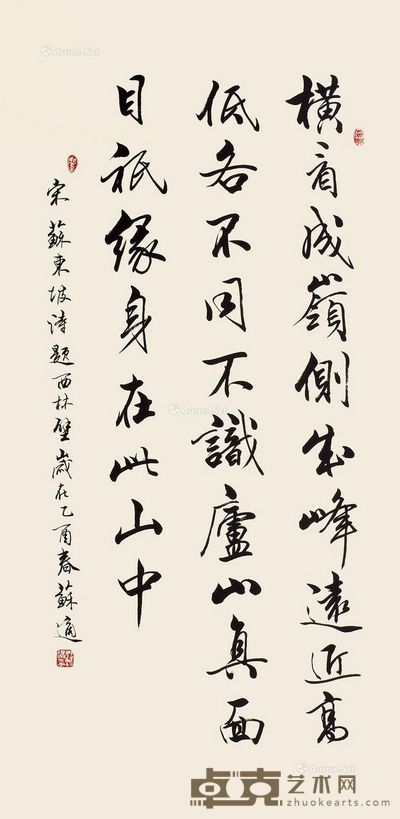 橫看成嶺側成峰遠近高
低各不同不識廬山真面
目祇緣身在此山中
宋蘇東坡詩題西林壁歲在乙酉春蘇適
卓克艺术网
zhuokearts.com
Artron.Net